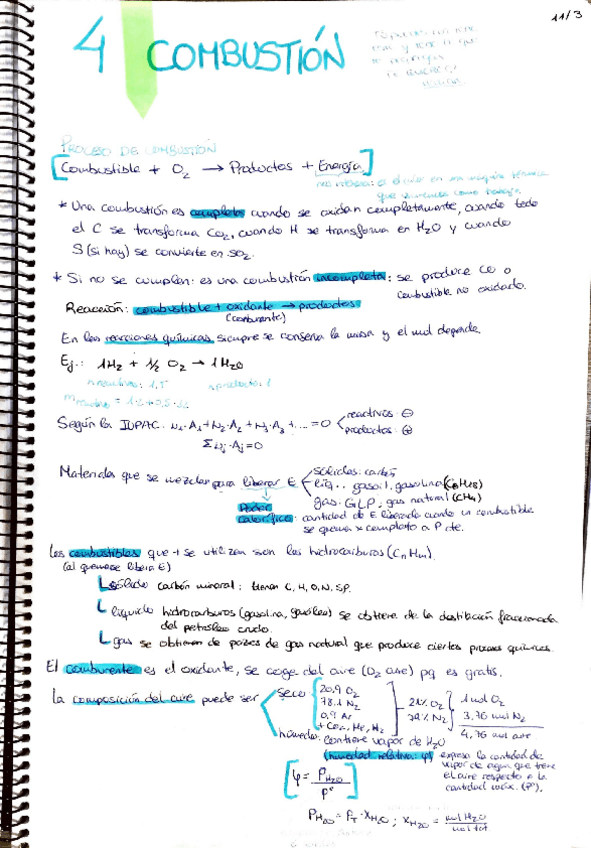 11/3
4 COMBUSTIÓN
PROCESO DE COMBUSTIÓN
Combustible + O2 → Productos + Energía
* Una combustión es completa cuando se oxidan completamente, cuando todo
el C se transforma CO2, cuando H se transforma en H2O y cuando
S (si hay) se convierte en SO2.
* Si no se cumplen: es una combustión incompleta: se produce CO o
combustible no oxidado.
Reacción: combustible + oxidante → productos
(comburente)
En las reacciones químicas siempre se conserva la masa y el mol depende.
Ej.: 1H2 + 1/2 O2 → 1H2O
Según la IUPAC: ν1·A1+ν2·A2+ν3·A3+....=0 reactivos: ⊖
productos: ⊕
Σνj·Aj=0
Materiales que se mezclan para liberar E sólidos: carbón
líq.: gasoil, gasolina (C8H18)
gas: GLP, gas natural (CH4)
Poder
calorífico: cantidad de E liberada cuando un combustible
se quema x completo a P cte.
Los combustibles que + se utilizan son los hidrocarburos (CnHm).
(al quemarse libera E)
sólido carbón mineral: tienen C, H, O, N, S, P.
líquido hidrocarburos (gasolina, gasóleo) se obtiene de la destilación fraccionada
del petróleo crudo.
gas se obtienen de pozos de gas natural que produce ciertos procesos químicos.
El comburente es el oxidante, se coge del aire (O2 aire) pq es gratis.
La composición del aire puede ser seco: 20,9 O2
78,1 N2
0,9 Ar
+ CO2, He, H2
21% O2
79% N2
1 mol O2
3,76 mol N2
4,76 mol aire
húmedo: contiene vapor de H2O
(humedad relativa: φ) expresa la cantidad de
vapor de agua que tiene
el aire respecto a la
cantidad máx. (Pº).
φ = PH2O / Pº
PH2O = PT · XH2O ; XH2O = mol H2O / mol tot